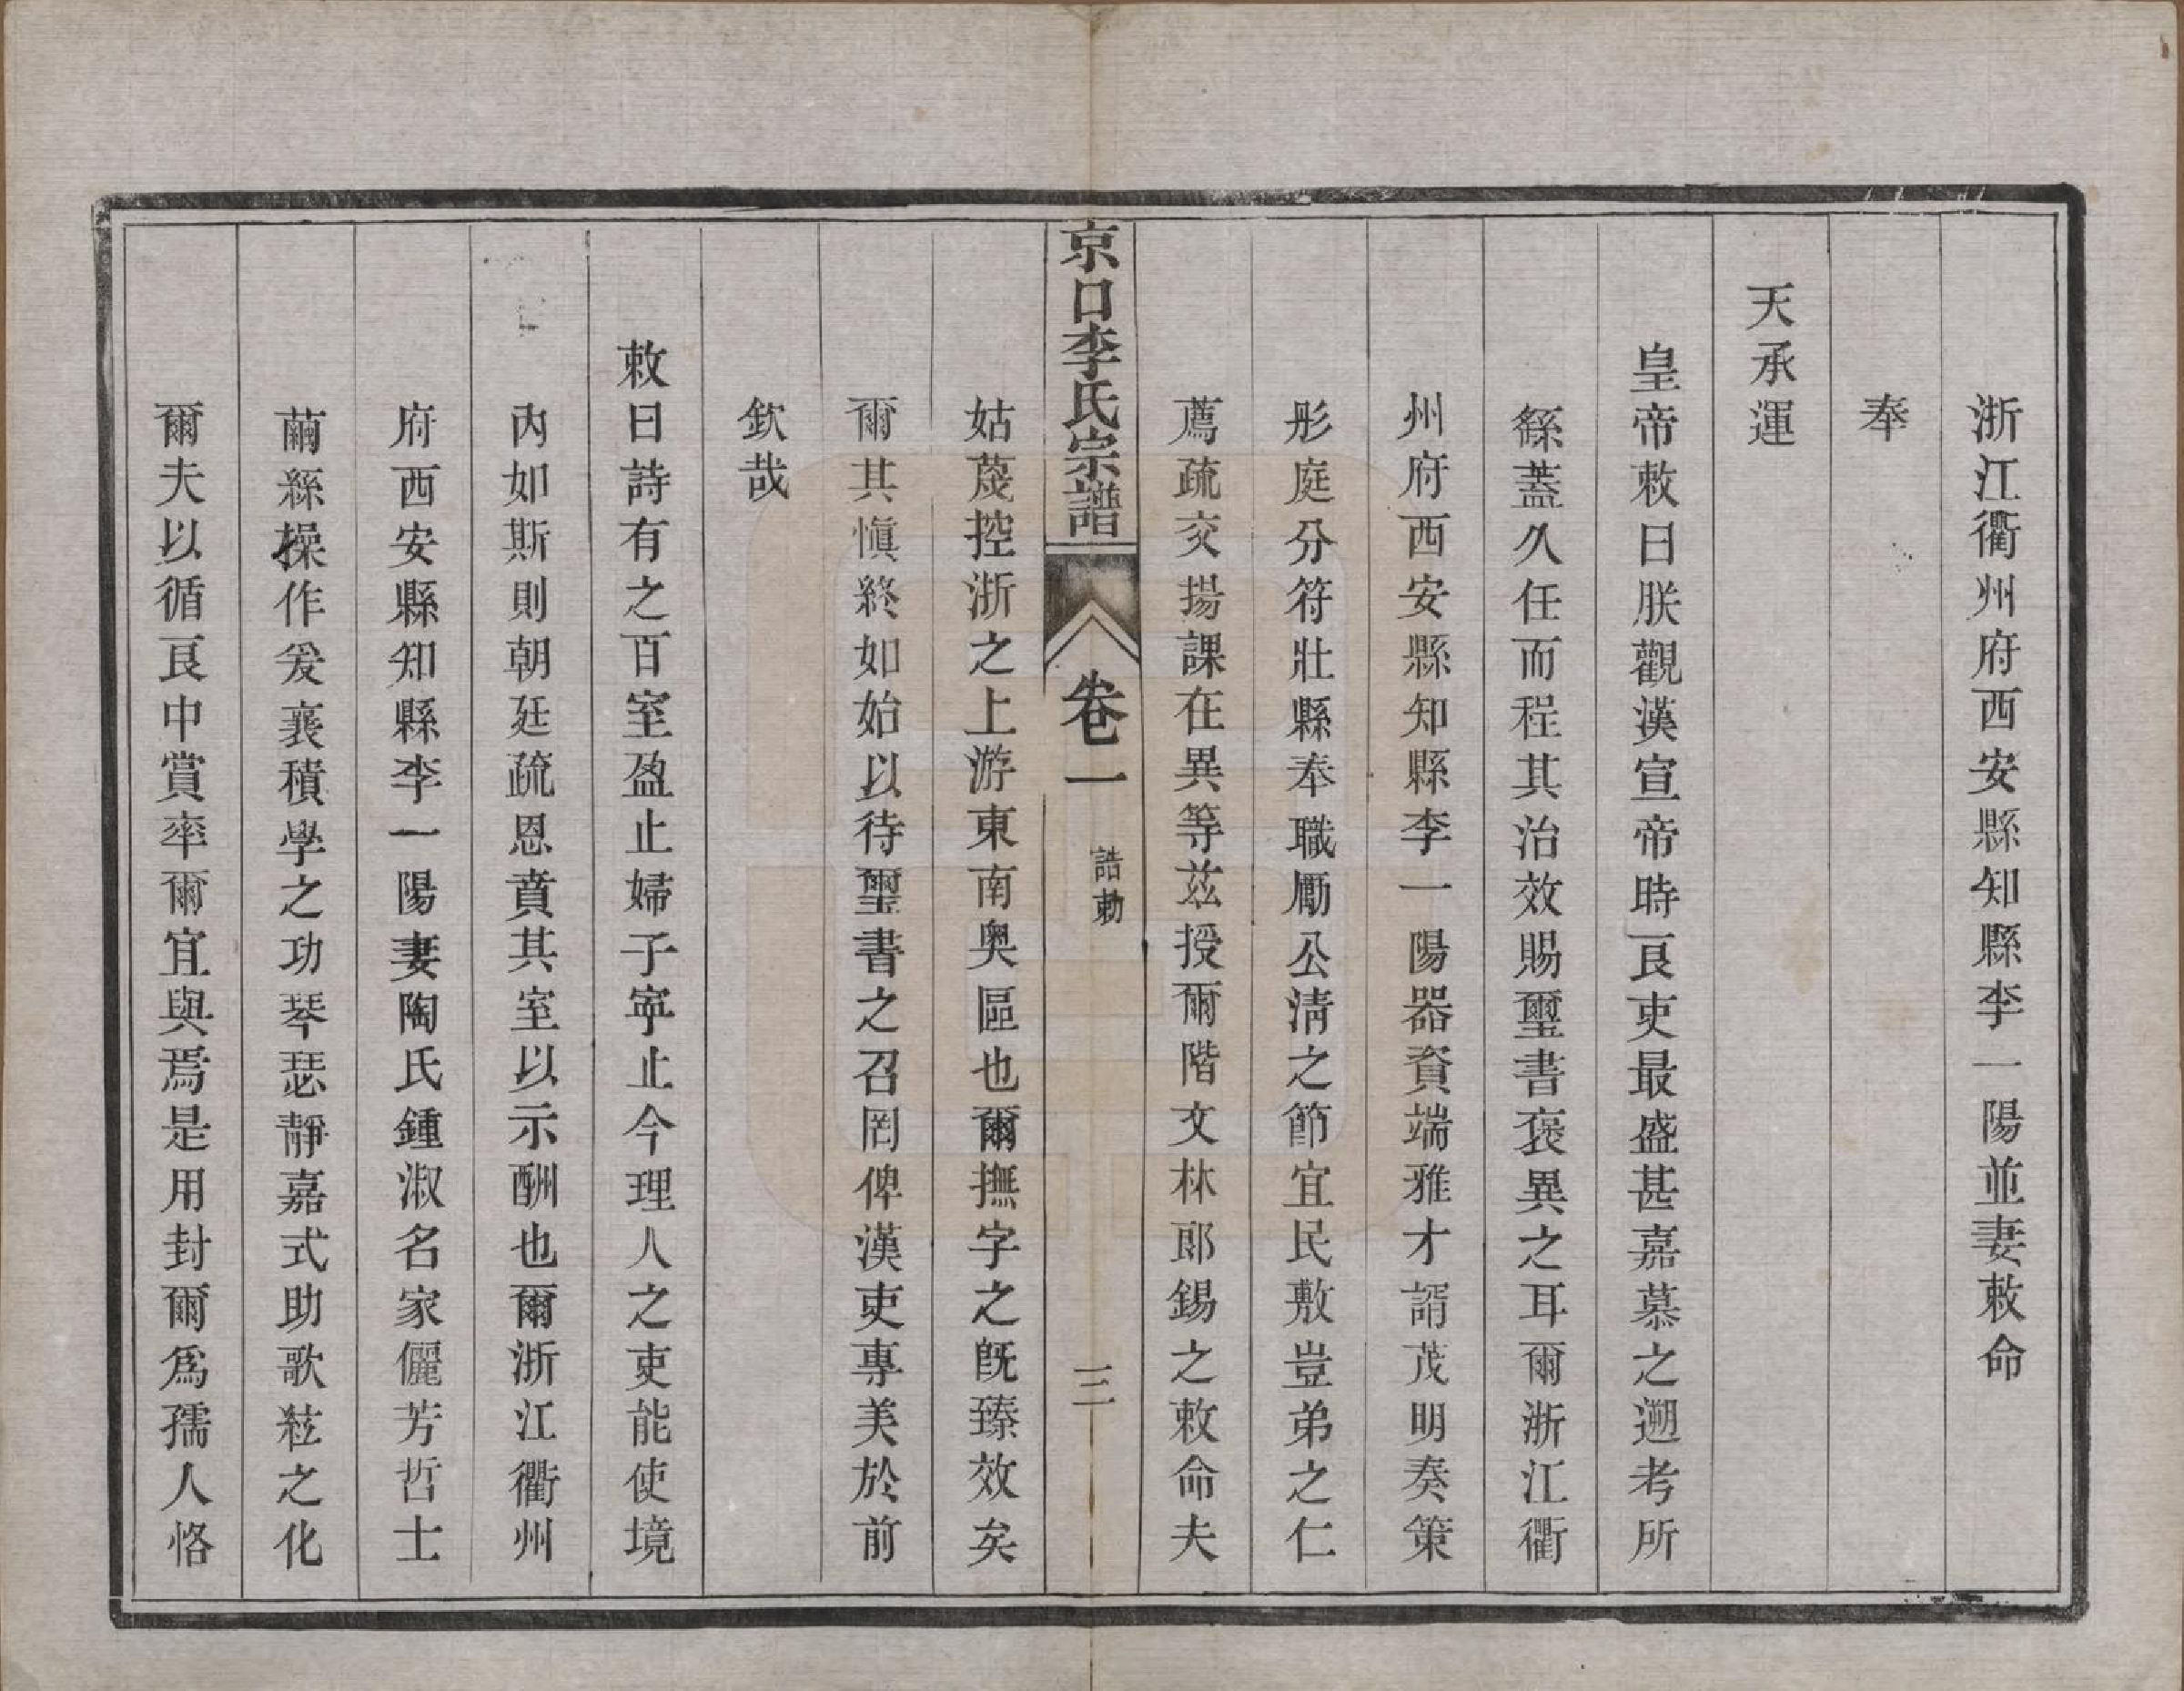 浙江衢州府西安縣知縣李一陽並妻敕命
奉
天承運
皇帝敕曰朕觀漢宣帝時良吏最盛甚嘉慕之遡考所
繇蓋久任而程其治效賜璽書褒異之耳爾浙江衢
州府西安縣知縣李一陽器資端雅才諝茂明奏策
彤庭分符壯縣奉職勵公淸之節宜民敷豈弟之仁
薦疏交揚課在異等兹授爾階文林郎錫之敕命夫
京口李氏宗譜
卷一
誥勅
三
姑蔑控浙之上游東南奥區也爾撫字之旣臻效矣
爾其愼終如始以待璽書之召罔俾漢吏專美於前
欽哉
敕曰詩有之百室盈止婦子寧止今理人之吏能使境
內如斯則朝廷疏恩賁其室以示酬也爾浙江衢州
府西安縣知縣李一陽妻陶氏鍾淑名家儷芳哲士
繭絲操作爰襄積學之功琴瑟靜嘉式助歌之化
爾夫以循良中賞率爾宜與焉是用封爾爲孺人恪